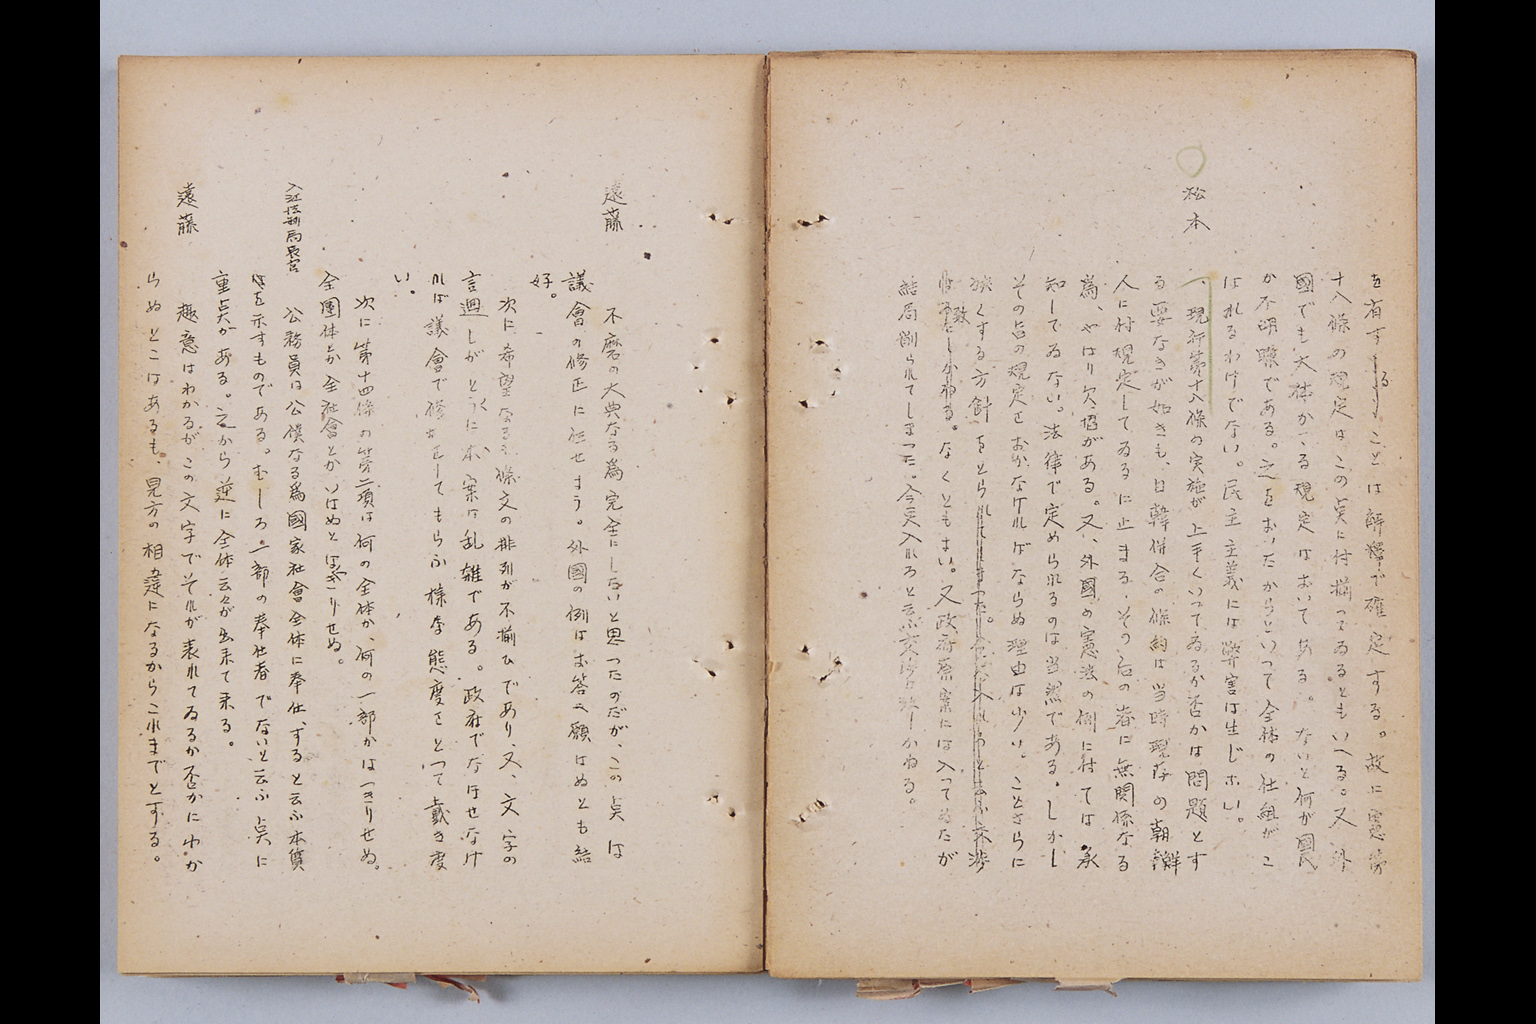 を有することは解釋で確定する。故に憲法
十八條の規定はこの点に付揃つてゐるともいへる。又外
國でも大体かゝる規定はおいてある。ないと何が國民
か不明瞭である。之をおいたからといつて全体の仕組がこ
はれるわけでない。民主主義には弊害は生じない。
松本
一、現行第十八條の実施が上手くいつてゐるか否かは問題とす
る要なきが如きも、日韓併合の條約は当時現存の朝鮮
人に付規定してゐるに止まる。その后の者に無関係なる
為、やはり欠缺がある。又、外國の憲法の例に付ては承
知してゐない。法律で定められるのは当然である。しかし
その旨の規定をおかなければならぬ理由は少い。ことさらに
狭くする方針をとられ
しかねる。なくともよい。又政府原案には入つてゐたが
結局削られてしまつた。今更入れろと云ふ交渉は致しかねる。
遠藤
不磨の大典なる為完全にしたいと思つたのだが、この点は
議會の修正に任せよう。外國の例はお答へ願はぬとも結
好。
次に希望なるが條文の排列が不揃ひであり、又、文字の
言廻しがとくに本案は乱雑である。政府でなほせなけ
れば議會で修正してもらふ様な態度をとつて戴き度
い。
次に第十四條の第二項は何の全体か、何の一部かはつきりせぬ。
全團体とか全社會とかいはぬとはつきりせぬ。
入江法制局長官
公務員は公僕なる為國家社會全体に奉仕、すると云ふ本質
を示すものである。むしろ。一部の奉仕者でないと云ふ点に
重点がある。之から逆に全体云々が出来て来る。
遠藤
趣意はわかるがこの文字でそれが表れてゐるか否かにわか
らぬところはあるも、見方の相違になるからこれまでとする。